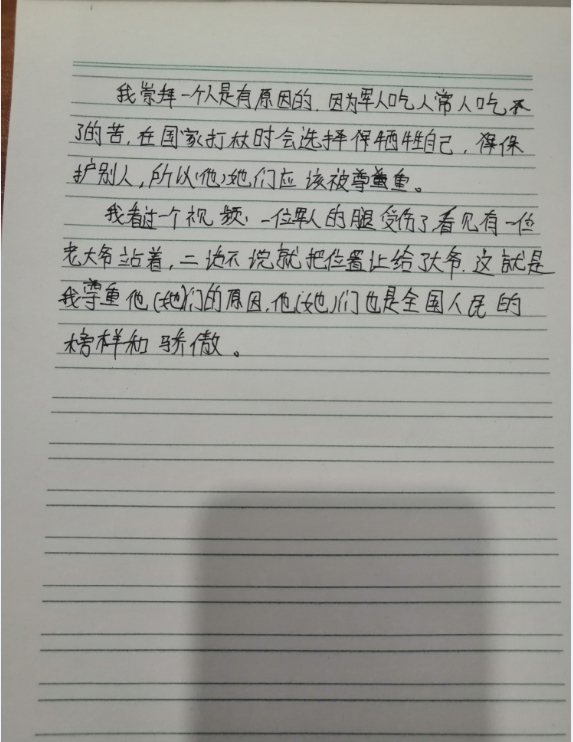 我崇拜一个人是有原因的.因为军人吃人常人吃不
了的苦,在国家打杖时会选择保牺牲自己,保
护别人,所以(他)她们应该被尊重。
我看过一个视频:一位军人的腿受伤了看见有一位
老大爷站着,二话不说就把位置让给了大爷.这就是
我尊重他(她)们的原因,他(她)们也是全国人民的
榜样和骄傲。